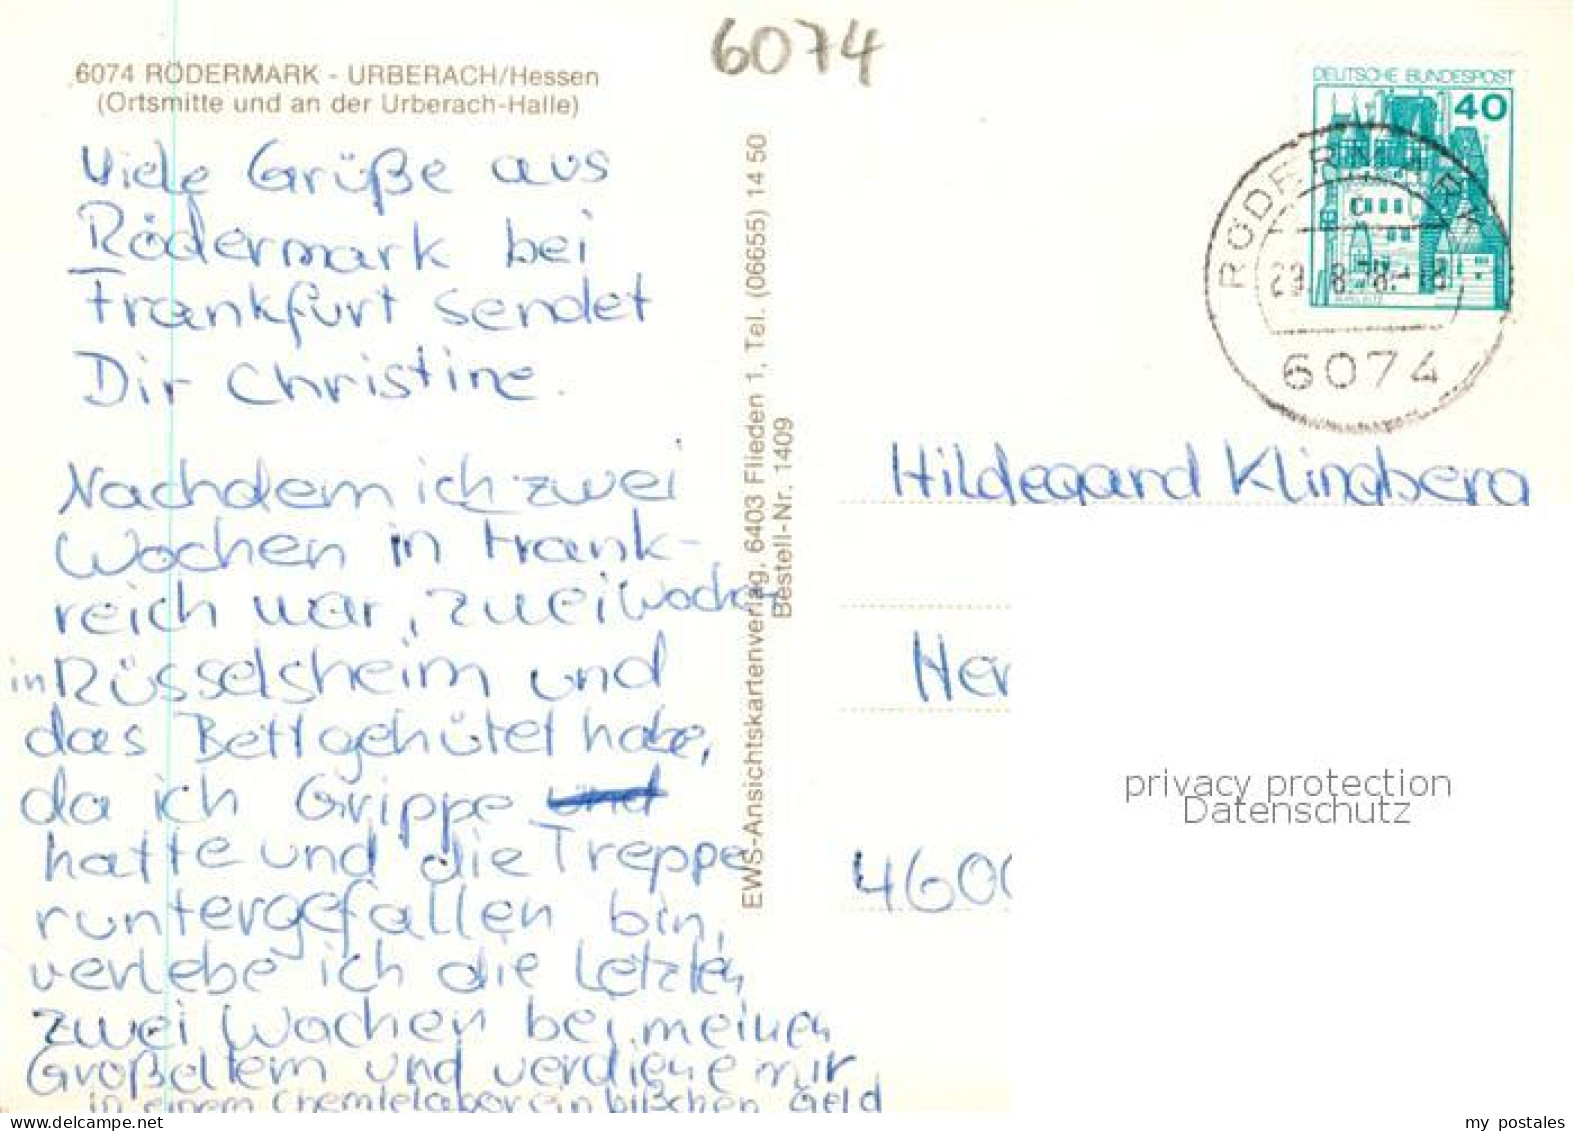 6074
6074 RÖDERMARK - URBERACH/Hessen
(Ortsmitte und an der Urberach-Halle)
Viele Grüße aus
Rödermark bei
Frankfurt sendet
Dir Christine.
Nachdem ich zwei
Wochen in Frank-
reich war, zwei Wochen
in Rüsselsheim und
das Bett gehütet habe,
da ich Grippe und
hatte und die Treppe
runtergefallen bin,
verlebe ich die letzten
zwei Wochen bei meinen
Großeltern und verdiene mir
in einem Chemielabor ein bißchen Geld
EWS-Ansichtskartenverlag, 6403 Flieden 1, Tel. (06655) 14 50
Bestell-Nr. 1409
DEUTSCHE BUNDESPOST
40
RÖDERMARK
6074
Hildegard Klingberg
Her
4600
privacy protection
Datenschutz
delcampe.net
my postales